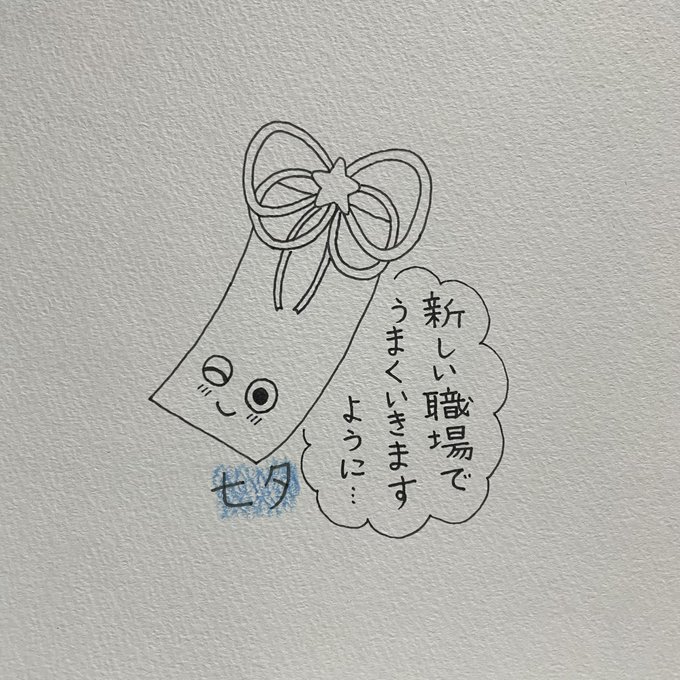 新しい職場で
うまくいきます
ように…
七夕